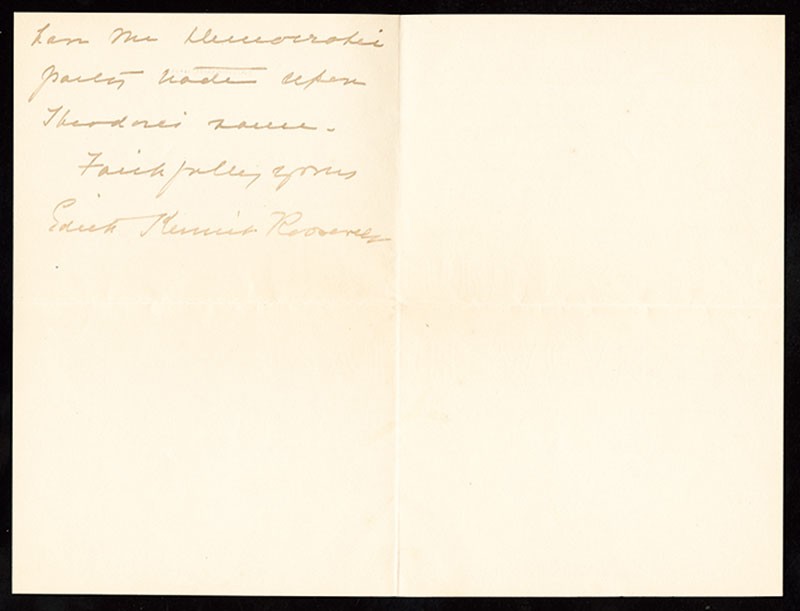 have the Democratic
party trade upon
Theodore's name.
Faithfully yours
Edith Kermit Roosevelt